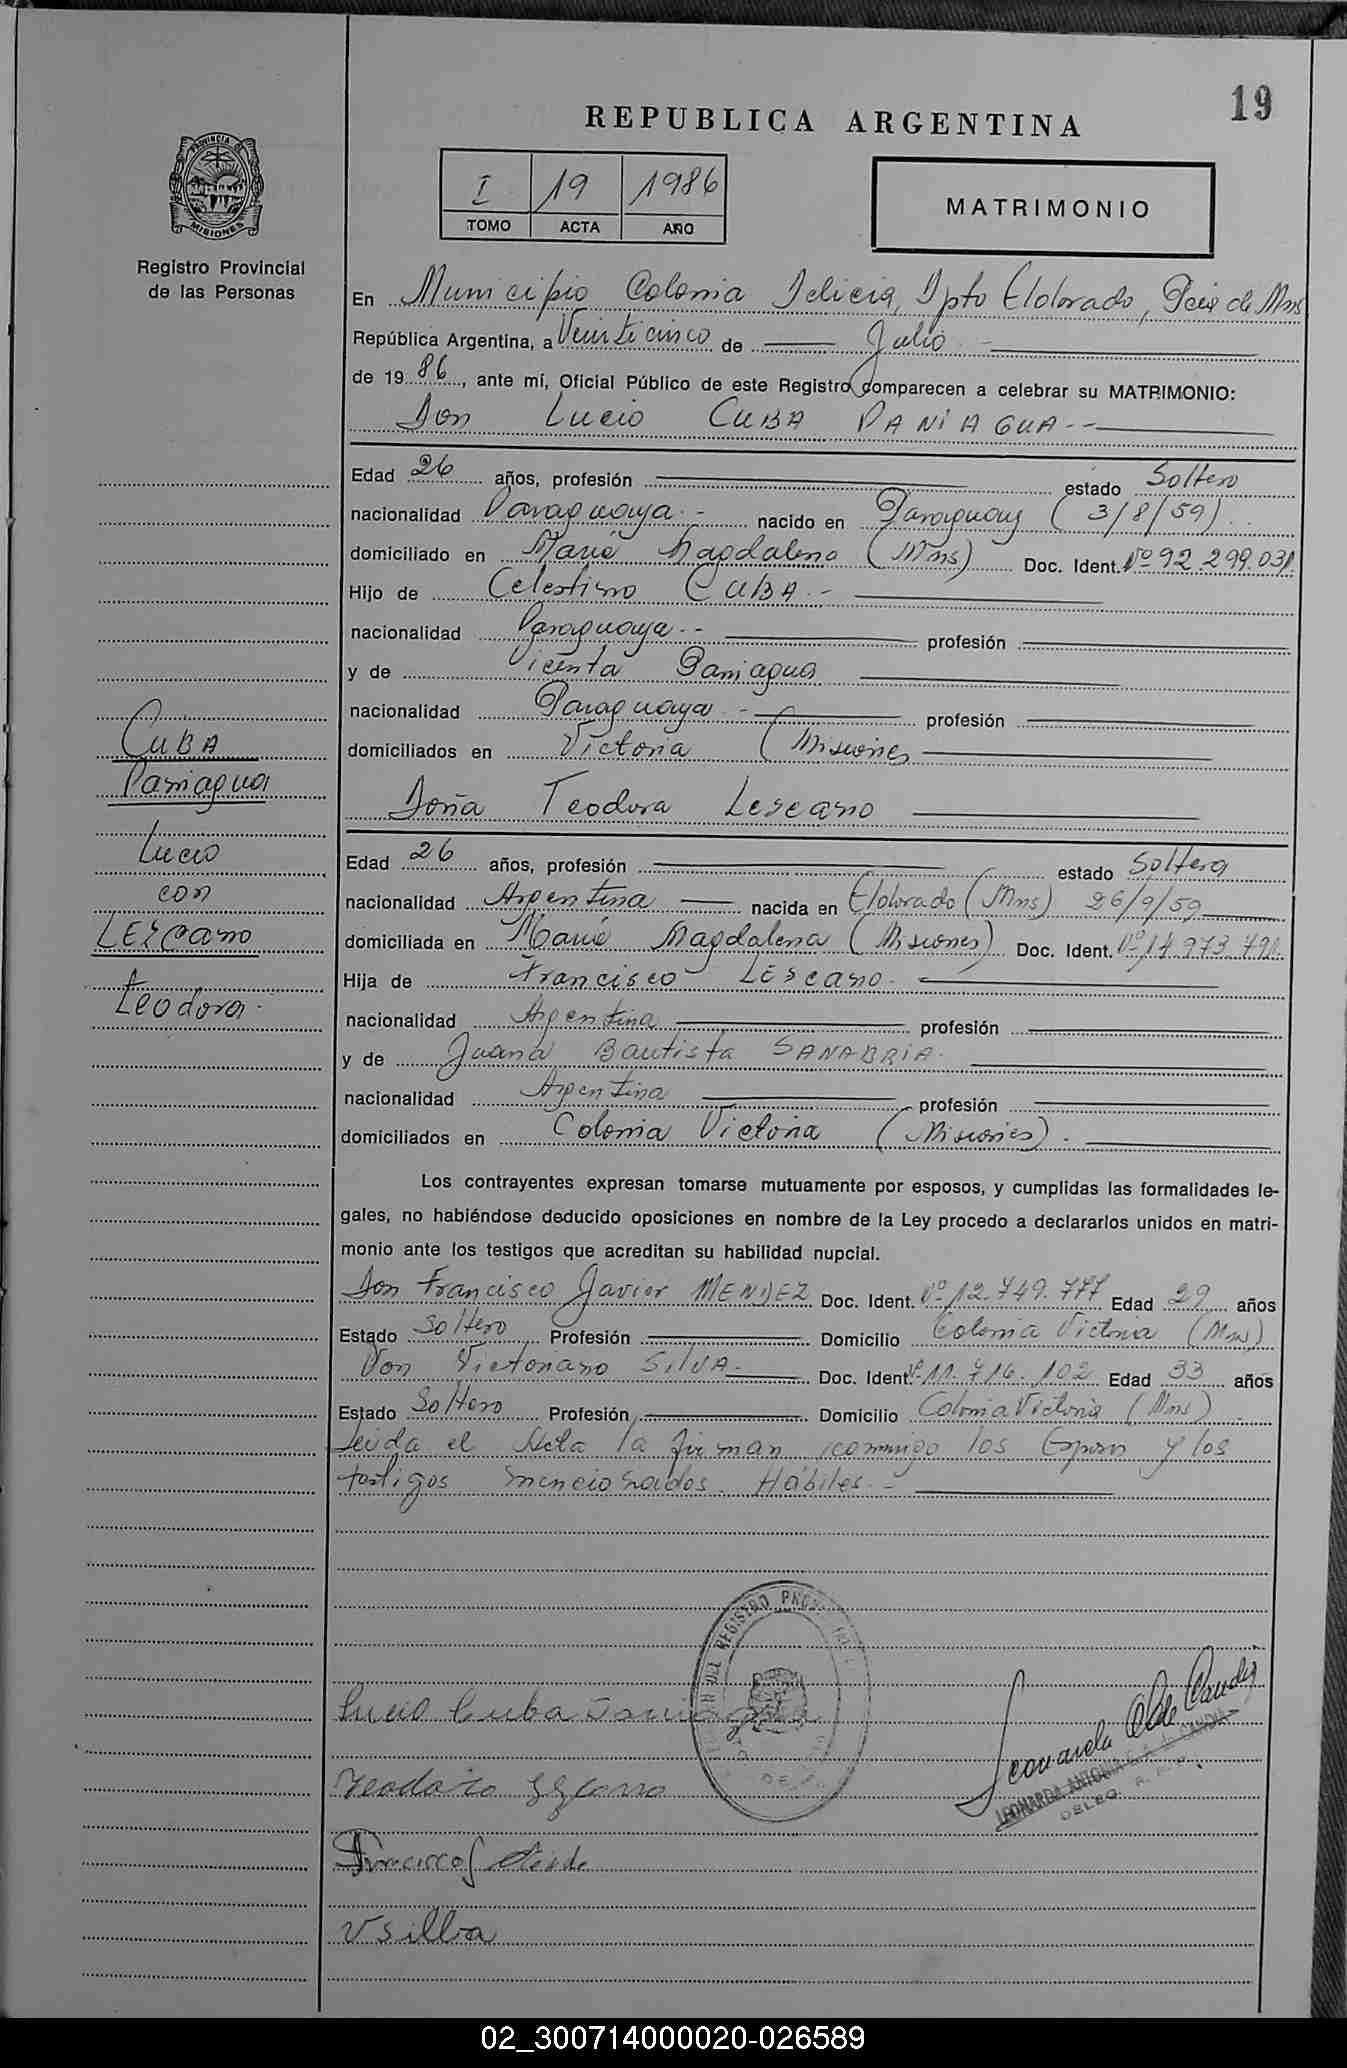 19
REPUBLICA ARGENTINA
PROVINCIA DE
MISIONES
I 19 1986
TOMO ACTA AÑO
MATRIMONIO
Registro Provincial
de las Personas
En Municipio Colonia Delicia, Dpto Eldorado, Pcia de Mnes
República Argentina, a Veinticinco de Julio
de 1986, ante mí, Oficial Público de este Registro comparecen a celebrar su MATRIMONIO:
Don Lucio CUBA PANIAGUA.--
Edad 26 años, profesión estado Soltero
nacionalidad Paraguaya.- nacido en Paraguay (3/8/59)
domiciliado en María Magdalena (Mnes) Doc. Ident. Nº 92.299.031.
Hijo de Celestino CUBA.-
nacionalidad Paraguaya.-- profesión
y de Vicenta Paniagua
nacionalidad Paraguaya - profesión
domiciliados en Victoria (Misiones
Doña Teodora Lescano
Edad 26 años, profesión estado Soltera
nacionalidad Argentina nacida en Eldorado (Mnes) 26/9/59
domiciliada en María Magdalena (Misiones) Doc. Ident. Nº 14.973.490.
Hija de Francisco LESCANO.
nacionalidad Argentina profesión
y de Juana Bautista SANABRIA.
nacionalidad Argentina profesión
domiciliados en Colonia Victoria (Misiones).
CUBA
Paniagua
Lucio
con
LESCANO
Teodora.
Los contrayentes expresan tomarse mutuamente por esposos, y cumplidas las formalidades le-
gales, no habiéndose deducido oposiciones en nombre de la Ley procedo a declararlos unidos en matri-
monio ante los testigos que acreditan su habilidad nupcial.
Don Francisco Javier MENDEZ Doc. Ident. Nº 12.749.777 Edad 29 años
Estado Soltero Profesión Domicilio Colonia Victoria (Mnes)
Don Victoriano SILVA.- Doc. Ident. Nº 11.716.102 Edad 33 años
Estado Soltero Profesión Domicilio Colonia Victoria (Mnes)
Leída el Acta la firman conmigo los Esposos y los
testigos mencionados. Hábiles.-
DEL REGISTRO
Lucio Cuba Paniagua
Teodora Lezcano
Leonarda de Candia
LEONARDA ANTONIA CANDIA
DELEG.
Francisco J
V Silba
02_300714000020-026589